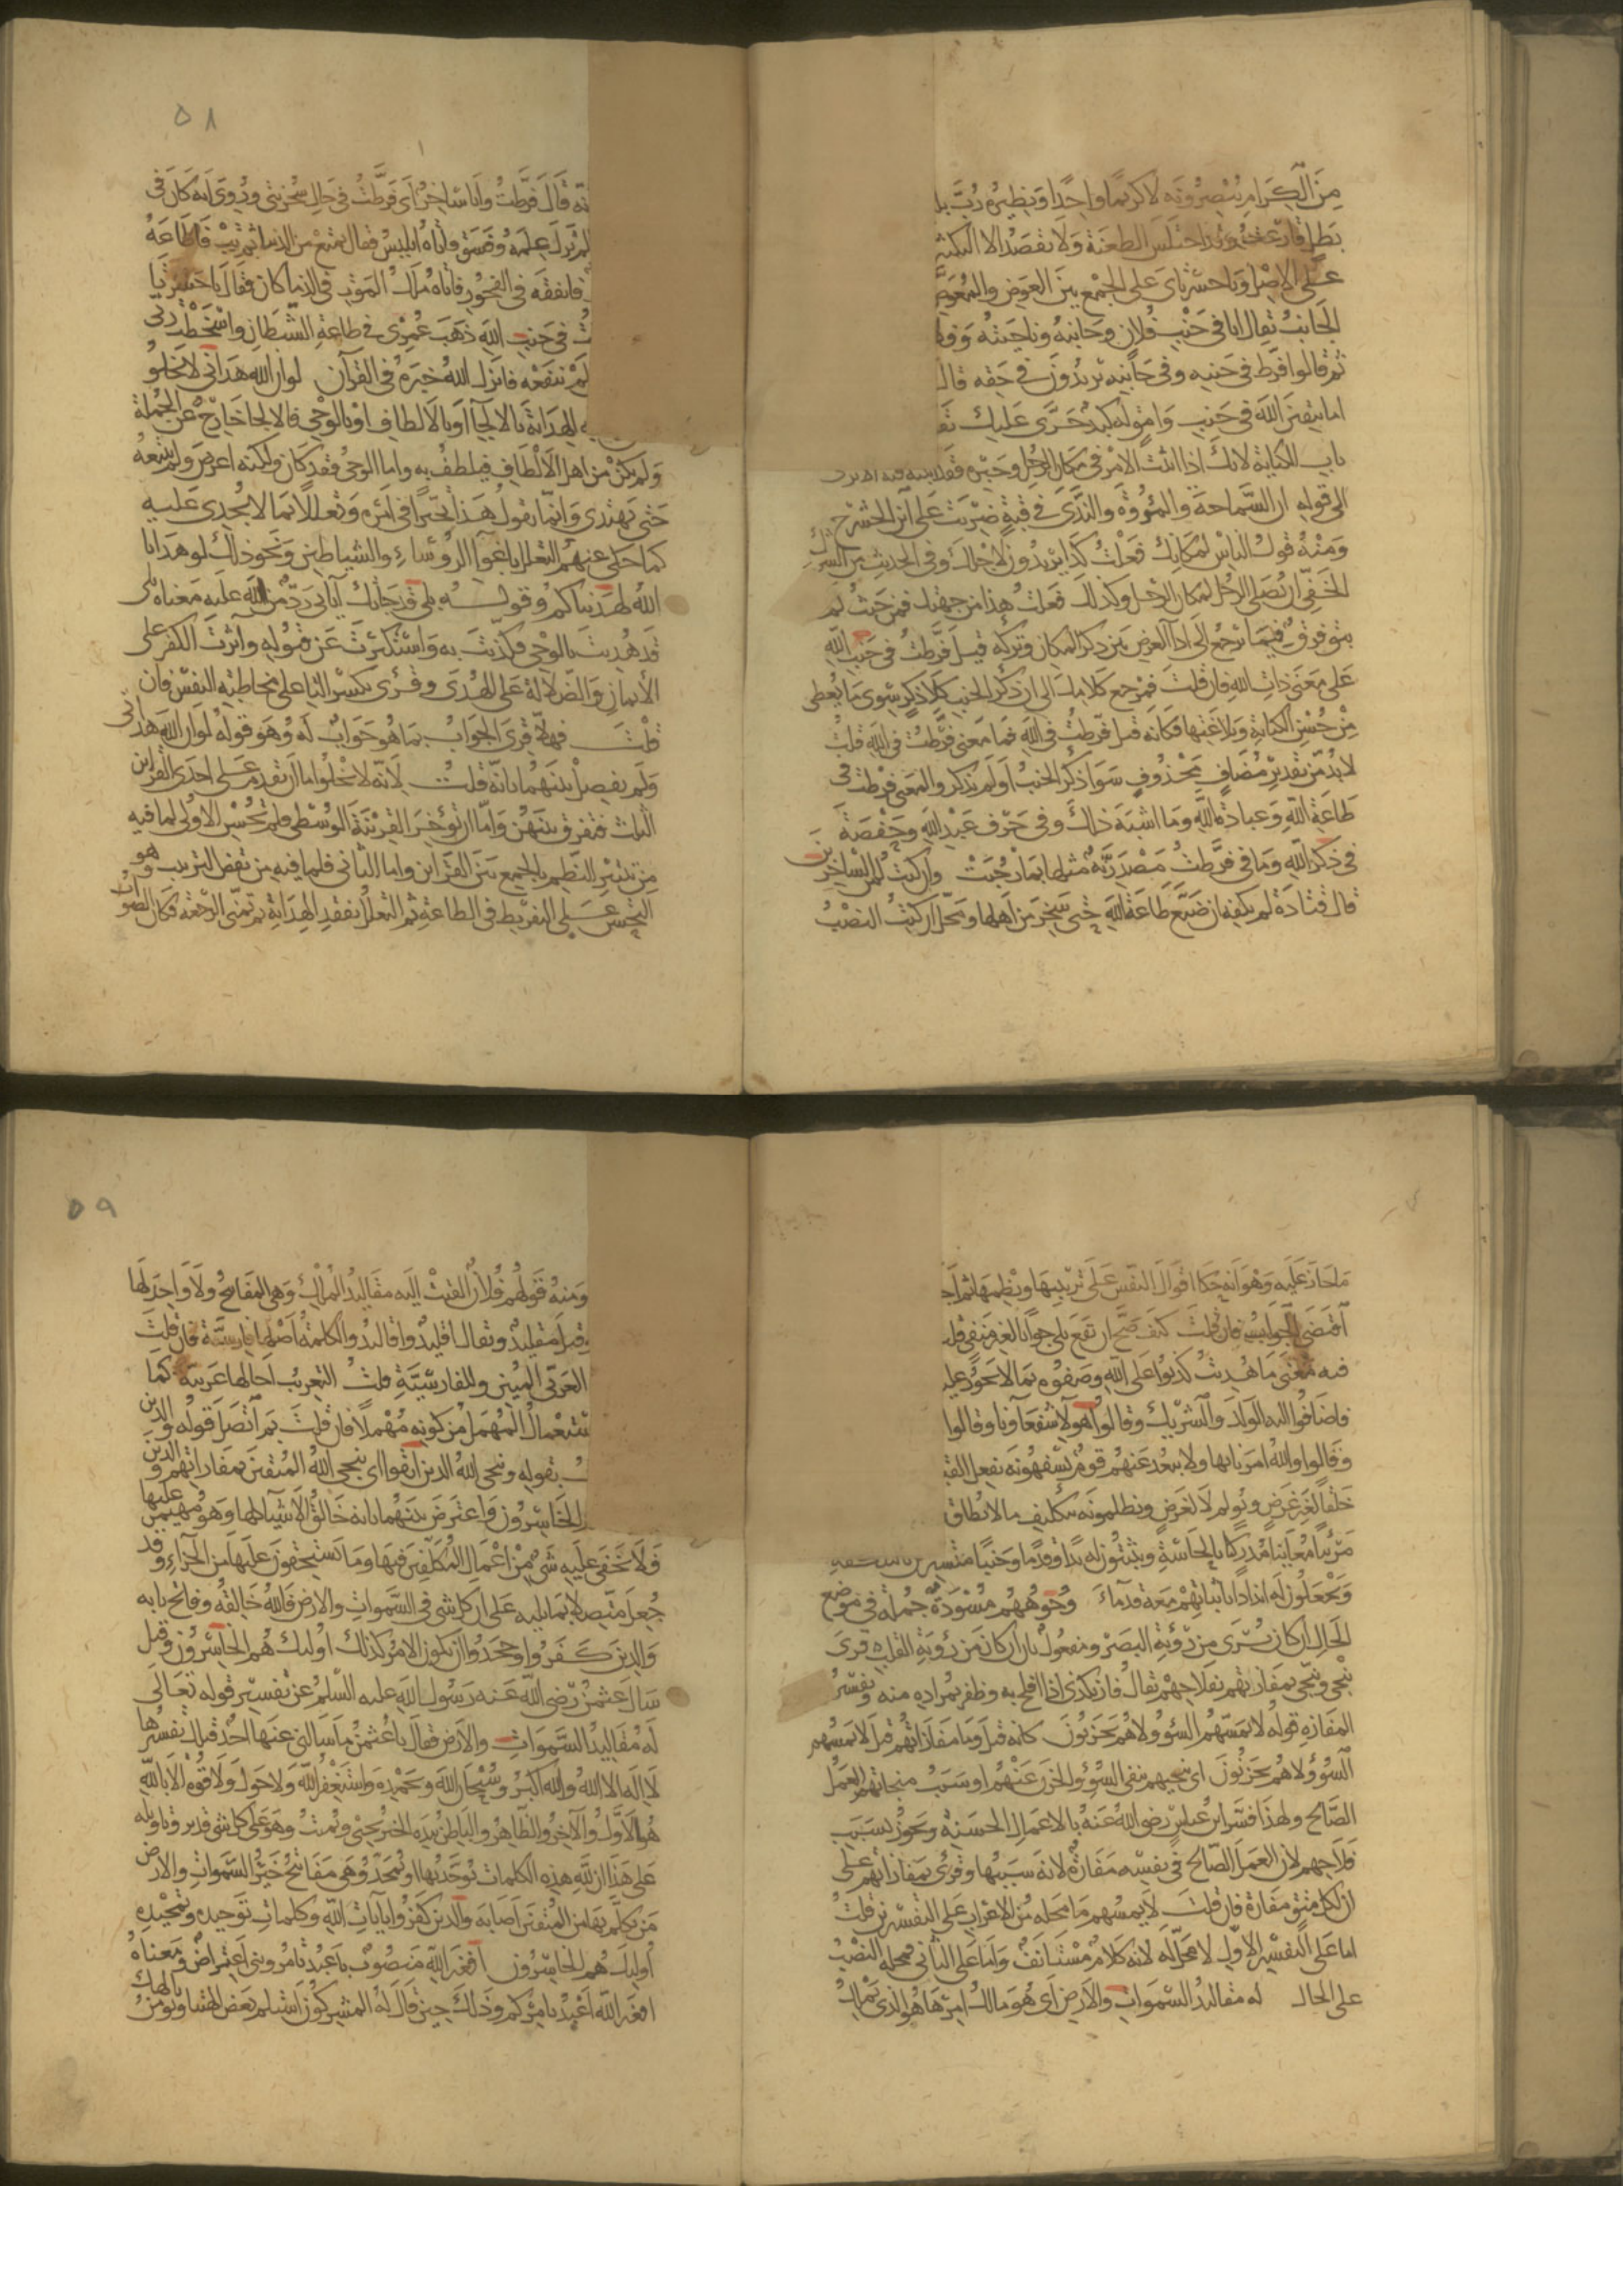 من الكرام ينصرونه لا كريما واحدا ونظيره رب بلد
بطل قارعت وقد اختلس الطعنة ولا تقصد الا التكثير
على الاصل ويا حسرتاى على الجمع بين العوض والمعوض
الجانب يقال انا في جنب فلان وجانبه وناحيته وفلا
ثم قالوا فرط في جنبه وفي جانبه يريدون في حقه قال
اما تتقين الله في جنب وامق له كبد حرى عليك تق
باب الكناية لانك اذا اثبت الامر في مكان الرجل وحيزه فقد اثبته فيه الا ترى
الى قوله ان السماحة والمروة والندى في قبة ضربت على ابن الحشرج
ومنه قول الناس لمكانك فعلت كذا يريدون لاجلك وفي الحديث من الشرك
الخفي ان يصلي الرجل لمكان الرجل وكذلك فعلت هذا من جهتك فمن حيث لم
يبق فرق فيما يرجع الى اداء الغرض بين ذكر المكان وتركه قيل فرطت في جنب الله
على معنى ذات الله فان قلت فمرجع كلامك الى ان ذكر الجنب كلا ذكر سوى ما يعطى
من حسن الكناية وبلاغتها فكانه قيل فرطت في الله فما معنى فرطت في الله قلت
لا بد من تقدير مضاف محذوف سوا ذكر الجنب او لم يذكر والمعنى فرطت في
طاعة الله وعبادة الله وما اشبه ذلك وفي حرف عبد الله وحفصة
في ذكر الله وما في فرطت مصدرية مثلها بما رحبت وان كنت لمن الساخرين
قال قتادة لم يكفه ان ضيع طاعة الله حتى سخر من اهلها ومحل ان كنت النصب
٥٨
نه قال فرطت وانا ساخر اى فرطت في حال سخريتي وروى انه كان في
لم ترك علمه وفسق واتاه ابليس فقال تمتع من الدنيا ثم تب فاطاعه
فانفقه في الفجور فاتاه ملك الموت في الذ ما كان فقال يا حسرتا
ت في جنب الله ذهب عمري في طاعة الشيطان واسخطت ربي
لم تنفعه فانزل الله خبره في القرآن لو ان الله هداني لا يخلو
به الهداية بالالجاء او بالالطاف او بالوحي فالالجا خارج عن الحكمة
ولم يكن من اهل الالطاف فيلطف به واما الوحي فقد كان ولكنه اعرض ولم يتبعه
حتى يهتدى وانما يقول هذا تحيرا في امره وتعللا بما لا يجدى عليه
كما حكى عنهم التعلل باغوا الروساء والشياطين ونحو ذلك لو هدانا
الله لهديناكم وقوله بلى قد جاتك آياتي رد من الله عليه معناه بلى
قد هديت بالوحي فكذبت به واستكبرت عن قبوله وآثرت الكفر على
الايمان والضلالة على الهدى وقرى بكسر التا على مخاطبة النفس فان
قلت فهلا قرن الجواب بما هو جواب له وهو قوله لو ان الله هداني
ولم يفصل بينهما بآية قلت لانه لا يخلوا اما ان تقدم على احدى القراين
الثلث فتفرق بينهن واما ان توخر القرينة الوسطى فلم يحسن الاول لما فيه
من تبتير النظم بالجمع بين القراين واما الثاني فلما فيه من نقض الترتيب وهو
التحسر على التفريط في الطاعة ثم التعلل بفقد الهداية ثم تمنى الرجعة فكان الصواب
ما جا عليه وهو انه حكا اقوال النفس على ترتيبها ونظمها ثم اجا
اقتضى الجواب فان قلت كيف صح ان تقع بلى جوابا لغير منفي قل
فيه معنى ما هديت كذبوا على الله وصفوه بما لا يجوز عليه
فاضافوا اليه الولد والشريك وقالوا هولا شفعاونا وقالوا
وقالوا والله امرنا بها ولا يبعد عنهم قوم يسفهونه بفعل القبا
خلقا لغير غرض ويولم لا لغرض ويظلمونه بتكليف ما لا يطاق
مرئيا معاينا مدركا بالحاسة ويثبتون له يدا وقدما وجنبا متسترين بالبلكفة
ويجعلون له اندادا باثباتهم معه قدماء وجوههم مسودة جملة في موضع
الحال ان كان ترى من رؤية البصر ومفعول ثان ان كان من رؤية القلب قرى
ينجي وينجي بمفازتهم بفلاحهم يقال فاز بكذى اذا افلح به وظفر بمراده منه وتفسير
المفازة قوله لا يمسهم السؤ ولا هم يحزنون كانه قيل وما مفازاتهم قيل لا يمسهم
السؤ ولا هم يحزنون اى ينجيهم بنفي السؤ والحزن عنهم او بسبب منجاتهم العمل
الصالح ولهذا فسر ابن عباس رضي الله عنه بالاعمال الحسنة ويجوز بسبب
فلاحهم لان العمل الصالح في نفسه مفازة لانه سببها وقرى بمفازاتهم على
ان لكل متق مفازة فان قلت لا يمسهم ما محله من الاعراب على التفسيرين قلت
اما على التفسير الاول لا محل له لانه كلام مستانف واما على الثاني فمحله النصب
على الحال له مقاليد السموات والارض اى هو مالك امرها هو الذى يملك
٥٩
ومنه قولهم فلان القيت اليه مقاليد الملك وهي المفاتح ولا واحد لها
وقيل مقليد ويقال اقليد واقاليد والكلمة اصلها فارسية فان قلت
العربي المبين وللفارسية قلت التعريب احالها عربية كما
ستعمال المهمل من كونه مهملا فان قلت بم اتصل قوله والذين
ت بقوله وينجي الله الذين اتقوا اى ينجي الله المتقين بمفازاتهم والذين
الخاسرون واعترض بينهما بانه خالق الاشياء كلها وهو مهيمن عليها
فلا يخفى عليه شى من اعمال المكلفين فيها وما يستحقون عليها من الجزاء وقد
جعل متصلا بما يليه على ان كل شى في السموات والارض فالله خالقه وفاتح بابه
والذين كفروا وجحدوا ان يكون الامر كذلك اوليك هم الخاسرون وقيل
سال عثمن رضي الله عنه رسول الله عليه السلم عن تفسير قوله تعالى
له مقاليد السموات والارض فقال يا عثمن ما سالني عنها احد قبلك تفسيرها
لا اله الا الله والله اكبر وسبحان الله وبحمده واستغفر الله ولا حول ولا قوة الا بالله
هو الاول والآخر والظاهر والباطن بيده الخير يحيى ويميت وهو على كل شى قدير وتاويله
على هذا ان لله هذه الكلمات يوحد بها ويمجد وهي مفاتح خير السموات والارض
من تكلم بها من المتقين اصابه والذين كفروا بآيات الله وكلمات توحيده وتمجيده
اوليك هم الخاسرون افغير الله منصوب باعبد وتامروني اعتراض ومعناه
افغير الله اعبد بامركم وذلك حين قال له المشركون استلم بعض آلهتنا ونومن بالهك